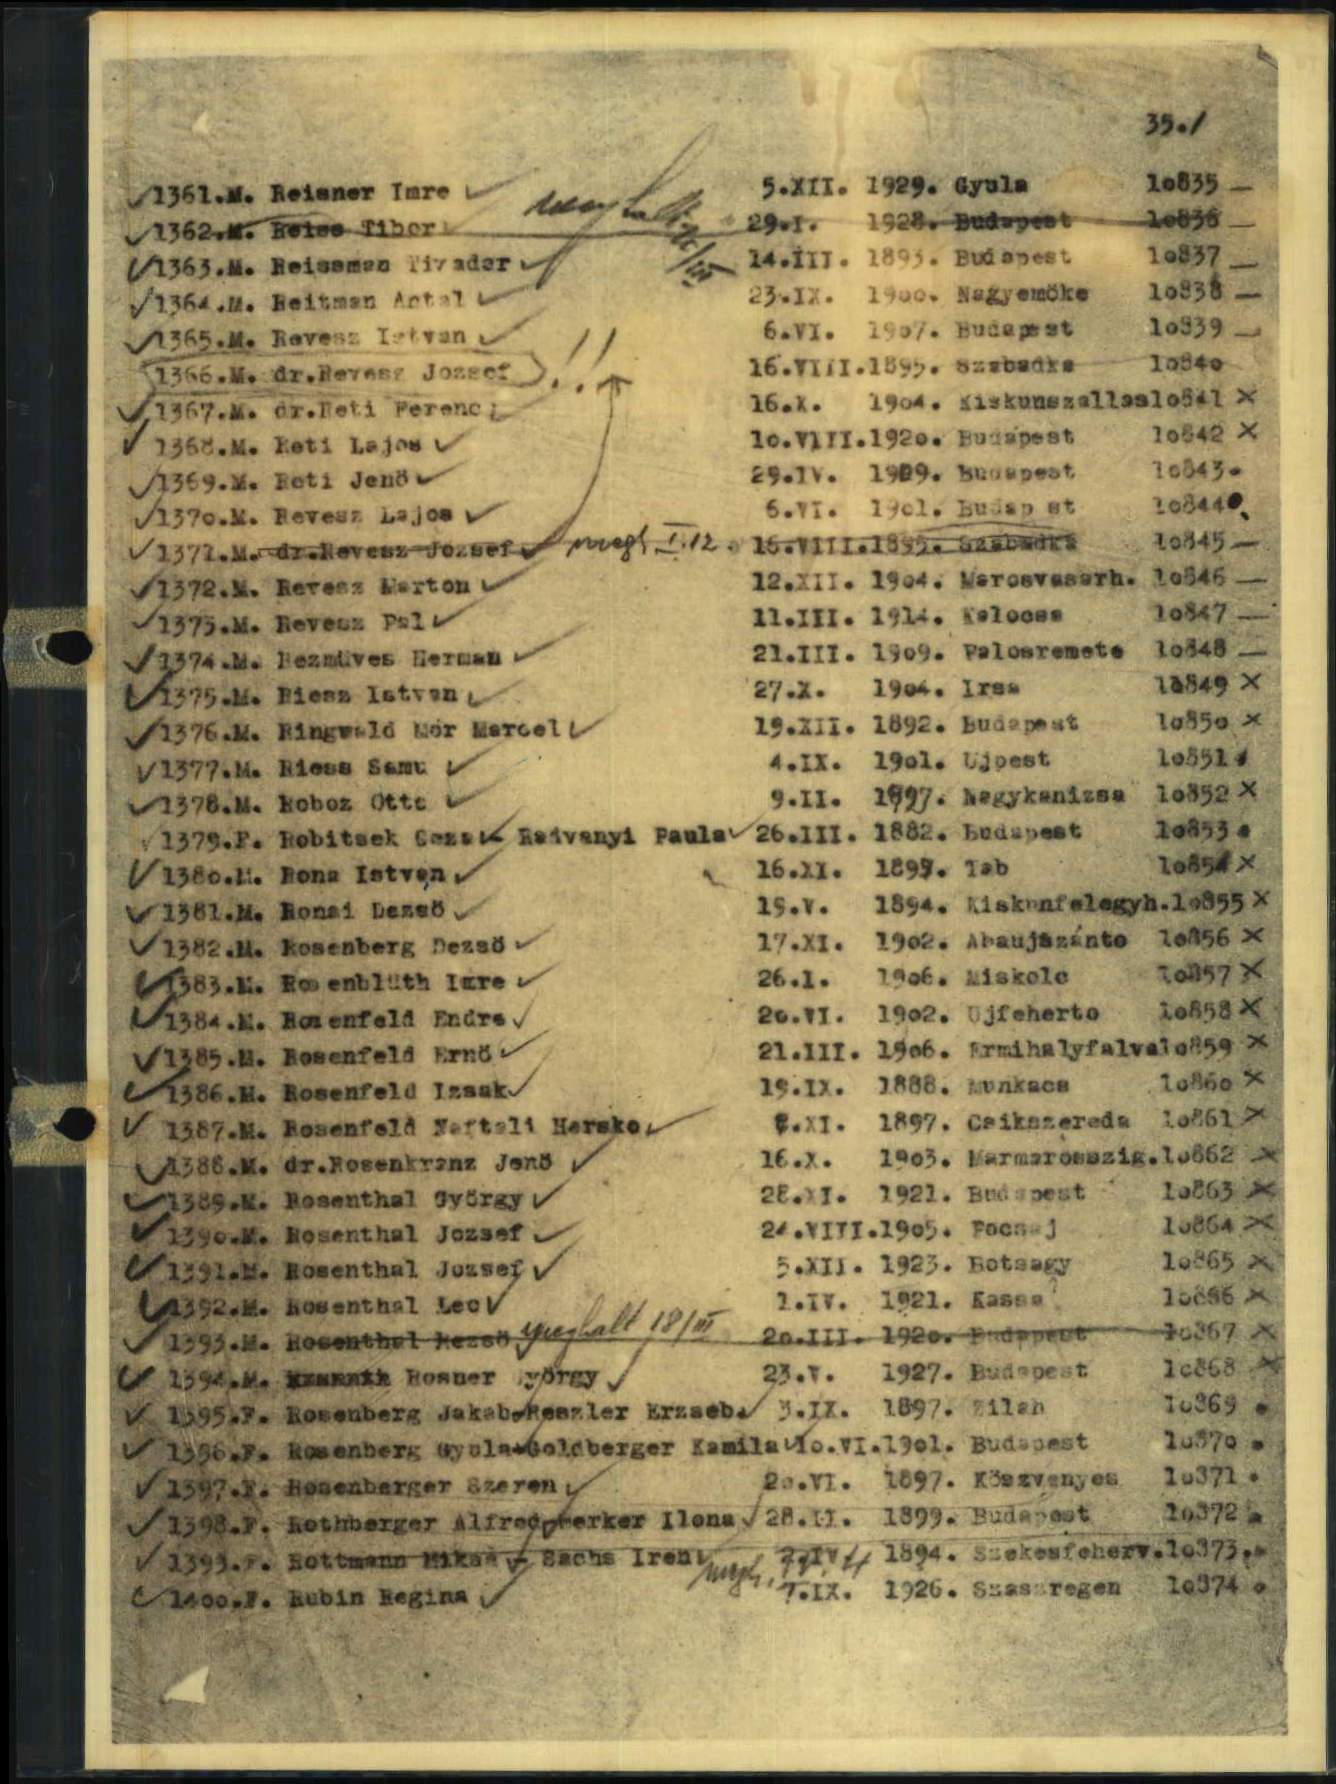 35./
1361.M. Reisner Imre 5.XII. 1929. Gyula 10835 —
1362.M. Reiss Tibor meghalt 29.I. 1928. Budapest 10836 —
1363.M. Reissman Tivador 14.III. 1893. Budapest 10837 —
1364.M. Reitman Antal 23.IX. 1900. Nagyemöke 10838 —
1365.M. Revesz Istvan 6.VI. 1907. Budapest 10839 —
1366.M. dr.Revesz Jozsef !! 16.VIII.1895. Szabadka 10840
1367.M. dr.Reti Ferenc 16.X. 1904. Kiskunszallas10841 X
1368.M. Reti Lajos 10.VIII.1920. Budapest 10842 X
1369.M. Reti Jenö 29.IV. 1909. Budapest 10843.
1370.M. Revesz Lajos 6.VI. 1901. Budap st 10844.
1371.M. dr.Revesz Jozsef megh I.12. 16.VIII.1895. Szabadka 10845 —
1372.M. Revesz Marton 12.XII. 1904. Marosvasarh. 10846 —
1373.M. Revesz Pal 11.III. 1914. Kalocsa 10847 —
1374.M. Rezmüves Herman 21.III. 1909. Palosremete 10848 —
1375.M. Riesz Istvan 27.X. 1904. Irsa 10849 X
1376.M. Ringwald Mór Marcel 19.XII. 1892. Budapest 10850 X
1377.M. Riess Samu 4.IX. 1901. Ujpest 10851.
1378.M. Roboz Otto 9.II. 1897. Nagykanizsa 10852 X
1379.F. Robitsek Geza - Radvanyi Paula 26.III. 1882. Budapest 10853.
1380.M. Rona Istvan 16.XI. 1897. Tab 10854 X
1381.M. Ronai Dezsö 19.V. 1894. Kiskunfelegyh.10855 X
1382.M. Rosenberg Dezsö 17.XI. 1902. Abaujszánto 10856 X
1383.M. Rosenblüth Imre 26.I. 1906. Miskolc 10857 X
1384.M. Rozenfeld Endre 20.VI. 1902. Ujfeherto 10858 X
1385.M. Rosenfeld Ernö 21.III. 1906. Ermihalyfalva10859 X
1386.M. Rosenfeld Izsak 19.IX. 1888. Munkacs 10860 X
1387.M. Rosenfeld Naftali Hersko XI. 1897. Csikszereda 10861 X
1388.M. dr.Rosenkranz Jenö 16.X. 1903. Marmarosszig.10862 X
1389.M. Rosenthal György 28.XI. 1921. Budapest 10863 X
1390.M. Rosenthal Jozsef 24.VIII.1905. Pocsaj 10864 X
1391.M. Rosenthal Jozsef 5.XII. 1923. Botsagy 10865 X
1392.M. Rosenthal Leo 1.IV. 1921. Kassa 10866 X
1393.M. Rosenthal Rezsö meghalt 18/III 20.III. 1920. Budapest 10867 X
1394.M. Rosner György 23.V. 1927. Budapest 10868 X
1395.F. Rosenberg Jakab-Reszler Erzseb. 3.IX. 1897. Zilah 10869 .
1396.F. Rosenberg Gyula-Goldberger Kamila 10.VI.1901. Budapest 10870 .
1397.F. Rosenberger Szeren 20.VI. 1897. Köszvenyes 10871 .
1398.F. Rothberger Alfred-Berker Ilona 28.II. 1899. Budapest 10872 .
1399.F. Rottmann Miksa - Sachs Iren megh. IV. 1894. Szekesfeherv.10873.
1400.F. Rubin Regina 7.IX. 1926. Szaszregen 10874 .